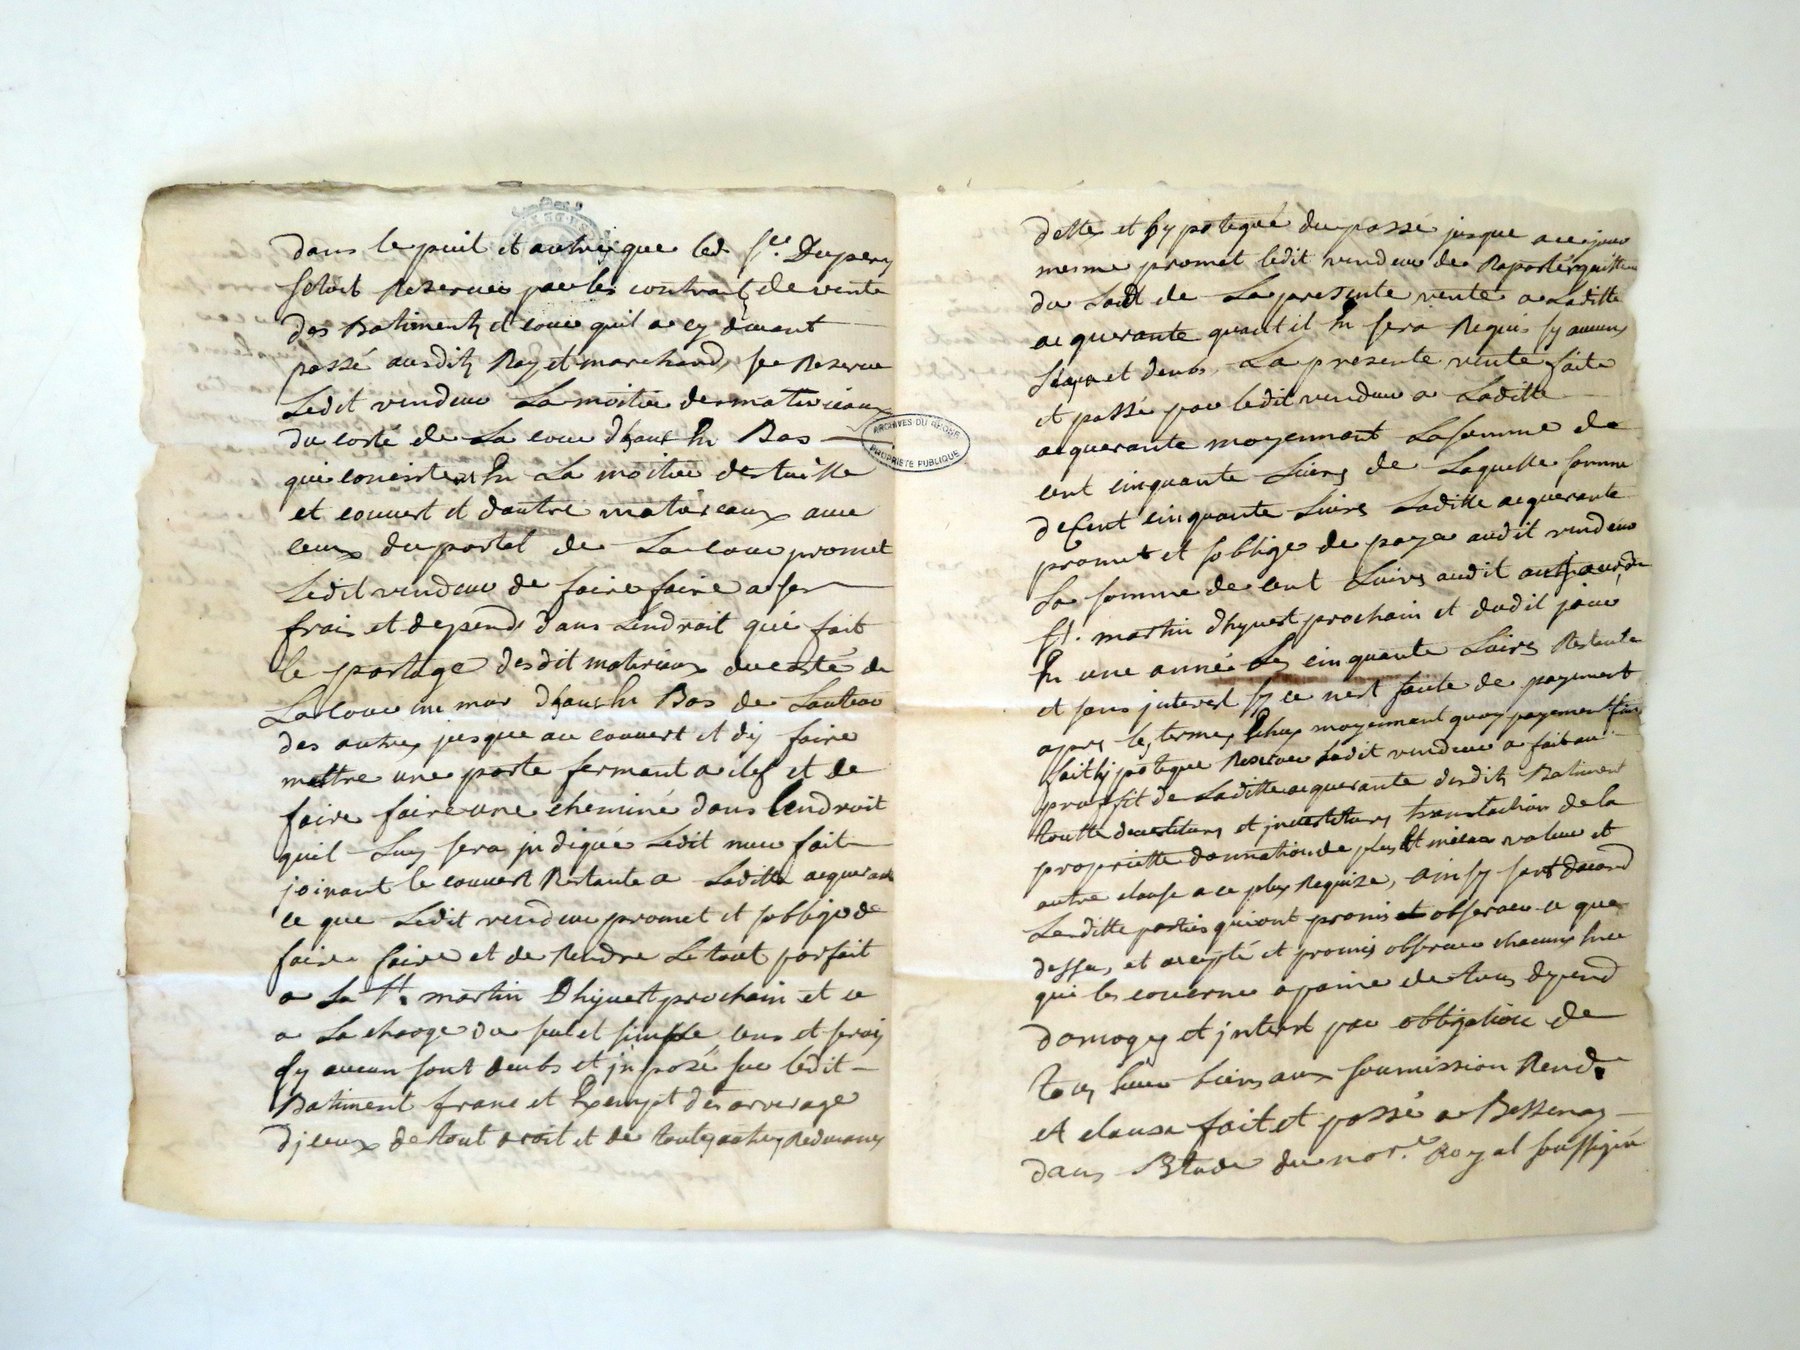 dans le puit et autres que led. Sr. Dupery
setoit Reservé par les contrat de vente
des Batiments et cour quil a cy devant
passé ausdits Ray et marchand, se Reserve
Ledit vendeur La moitie des materieaux
du costé de La cour dhaut En Bas
qui consiste En La moitie de tuille
et couvert et dautre matereaux avec
ceux du portal de La cour promet
Ledit vendeur de faire faire a ses
frais et depend dans Lendroit qui fait
le partage desdit materiaux du costé de
La cour un mur dhaut En Bas de Lauteur
des autres jusque au couvert et dy faire
mettre une porte fermant a clef et de
faire faire une cheminé dans Lendroit
quil Luy sera jndiqué Ledit mur fait
joinant le couvert Restante a Laditte acquerante
ce que Ledit vendeur promet et soblige de
faire faire et de Rendre Le tout parfait
a La St. martin Dhyvert prochain et ce
a La charge du seul et simple cens et servis
sy aucun sont deubs et jnposé sur ledit
Batiment franc et Exempt des arrerage
djceux de tout droit et de toutes autres Redevances
ARCHIVES DU RHONE
PROPRIETE PUBLIQUE
dettes et hypoteque du passé jusque a ce jour
mesme promet ledit vendeur de Raporter quittance
du Laod de La presente vente a Laditte
acquerante quant il En sera Requis sy aucuns
Laod et deubs, La presente vente faite
et passé par ledit vendeur a Laditte
acquerante moyennant La somme de
cent cinquante Livres de Laquelle somme
de Cent cinquante Livres Laditte acquerante
promet et soblige de payer audit vendeur
La somme de cent Livres audit jour de
St. martin dhyvert prochain et dudit jour
En une année Les cinquante Livres Restante
et sans jnterest sy ce nest faute de payement
apres les termes Echus moyennant quoy payement fait
sait hypoteque Reservée Ledit vendeur a fait au
proffit de Laditte acquerante desdits Batiment
toutte devestitures et jnvestitures translation de la
propriette donnation de plus Et mieux value et
autre clause a ce plus Requize, ainsy sont dacord
Lesditte parties qui ont promis et observer ce que
dessus, et accepté et promis observer chacune En ce
qui les concerne a paine de tous depend
domages et jnterest par obligation de
tous Leur biens aux soumission Rend.
et clause fait et passé a Bessenay
dans Etude du nore. Royal soussigné